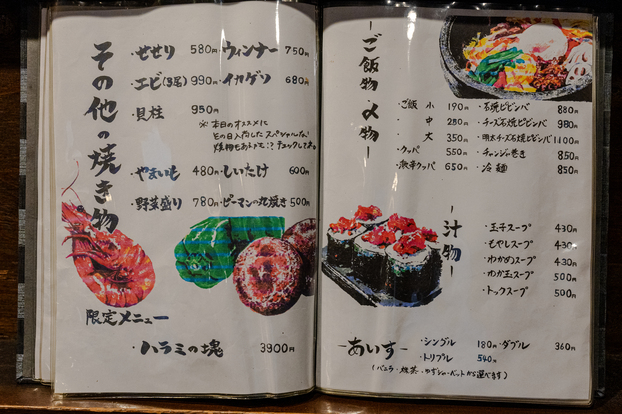 その他の焼き物
・せせり 580円 ・ウィンナー 750円
・エビ(3尾) 990円 ・イカゲソ 680円
・貝柱 950円
※本日のオススメに
その日入荷したスペシャルな
焼物もあるかも!?チェックしてみ
・やまいも 480円 ・しいたけ 600円
・野菜盛り 780円 ・ピーマンの丸焼き 500円
限定メニュー
・ハラミの塊 3900円
ーご飯物・〆物ー
・ご飯 小 190円
・中 280円
・大 350円
・クッパ 550円
・激辛クッパ 650円
・石焼ビビンバ 880円
・チーズ石焼ビビンバ 980円
・明太チーズ石焼ビビンバ 1100円
・チャンジャ巻き 850円
・冷麺 850円
ー汁物ー
・玉子スープ 430円
・もやしスープ 430円
・わかめスープ 430円
・わか玉スープ 500円
・トックスープ 500円
ーあいすー
・シングル 180円 ・ダブル 360円
・トリプル 540円
(バニラ・抹茶・ゆずシャーベットから選べます)